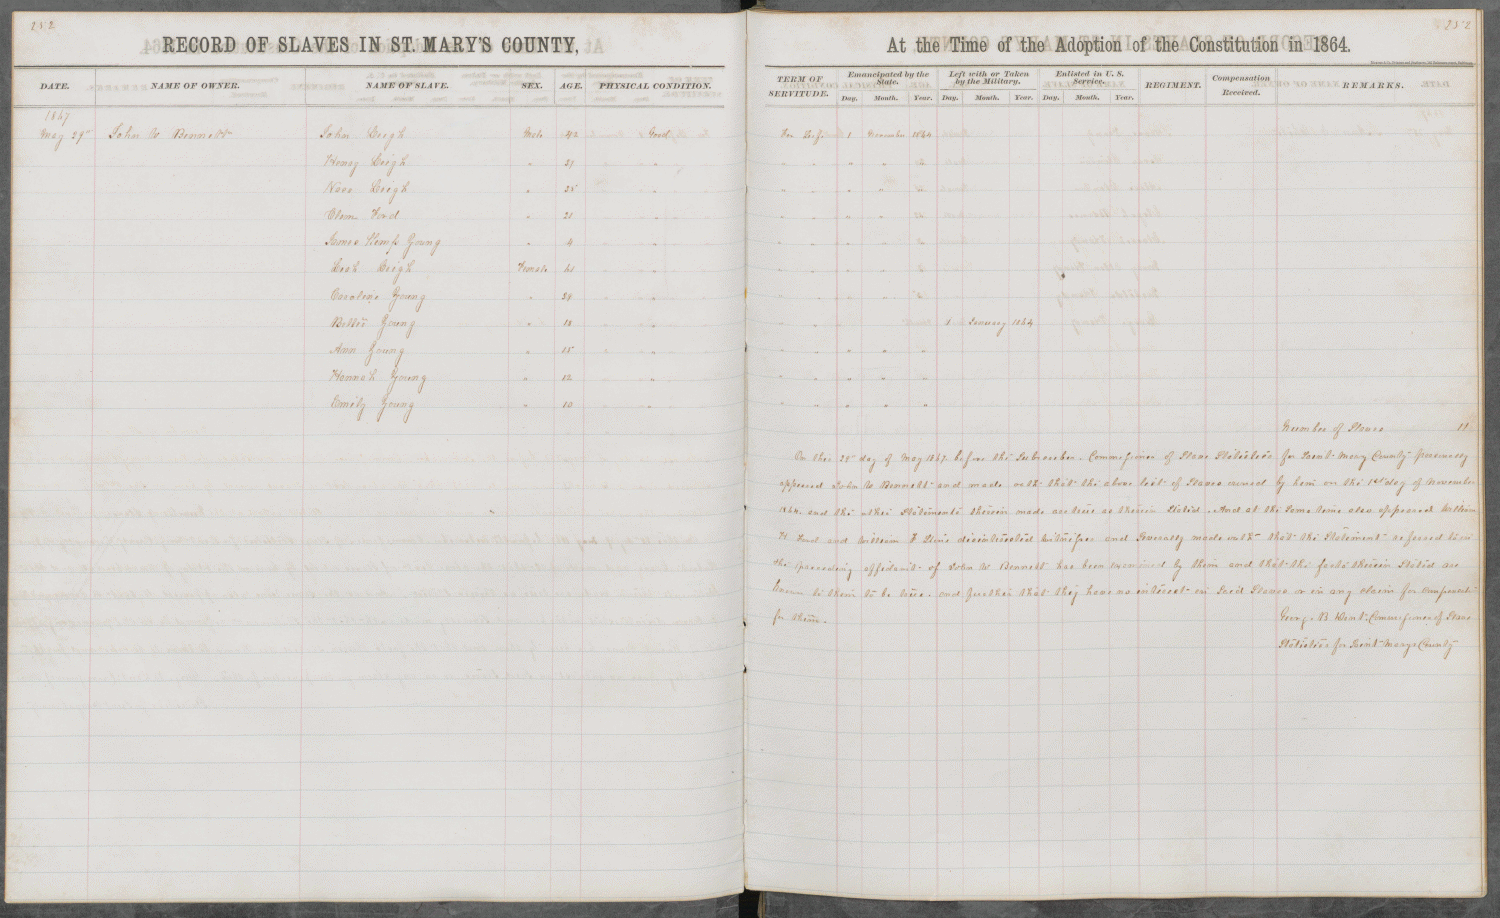 252
RECORD OF SLAVES IN ST. MARY'S COUNTY,
DATE. NAME OF OWNER. NAME OF SLAVE. SEX. AGE. PHYSICAL CONDITION.
1867
May 29" John W Bennett John Beigh Male 42 Good
Henry Beigh "
Beigh " 25 "
Clem Ford " 20 "
James Young " 4 "
Leah Beigh Female "
Caroline Young " "
Young " "
Ann Young " 15 "
Hannah Young " 12 "
Emily Young " 10 "
252
At the Time of the Adoption of the Constitution in 1864.
TERM OF SERVITUDE. Emancipated by the State. Left with or Taken by the Military. Enlisted in U. S. Service. REGIMENT. Compensation Received. REMARKS.
Day. Month. Year. Day. Month. Year. Day. Month. Year.
For Life 1 November 1864
" " " " "
" " " " "
" " " "
" " " "
" "
" "
" " 1 January 1864
" " " " "
" " " " "
" " " " "
Number of Slaves 11
On this day of May 1867 before the Subscriber, Commissioner of Slave Statistics for Saint Mary County personally
appeared John W Bennett and made oath that the above list of Slaves owned by him on the 1st day of November
1864, and the other Statements therein made are true as therein Stated. And at the Same time also appeared William
and William F disinterested Witnesses and Severally made oath that the Statement referred to in
the preceeding affidavit of John W Bennett has been examined by them and that the facts therein Stated are
known to them to be true, and further that they have no interest in Said Slaves or in any claim for compensation
for them.
George B Dent Commissioner of Slave
Statistics for Saint Marys County